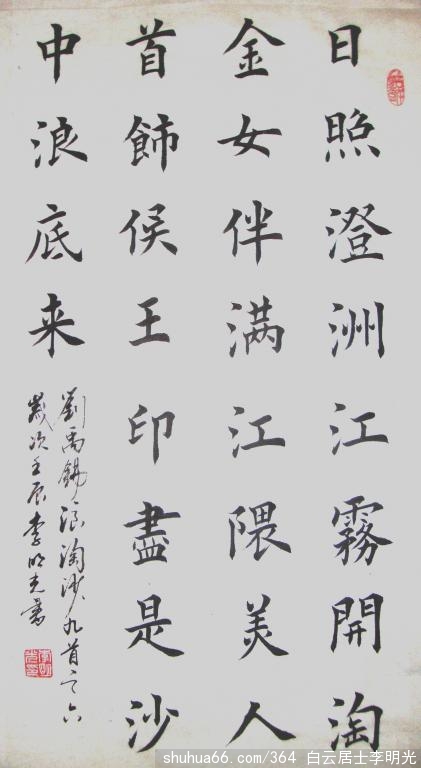 日照澄洲江霧開淘
金女伴满江隈美人
首飾侯王印盡是沙
中浪底来
劉禹錫浪淘沙九首之六
歲次壬辰李明光書
shuhua66.com/364 白云居士李明光